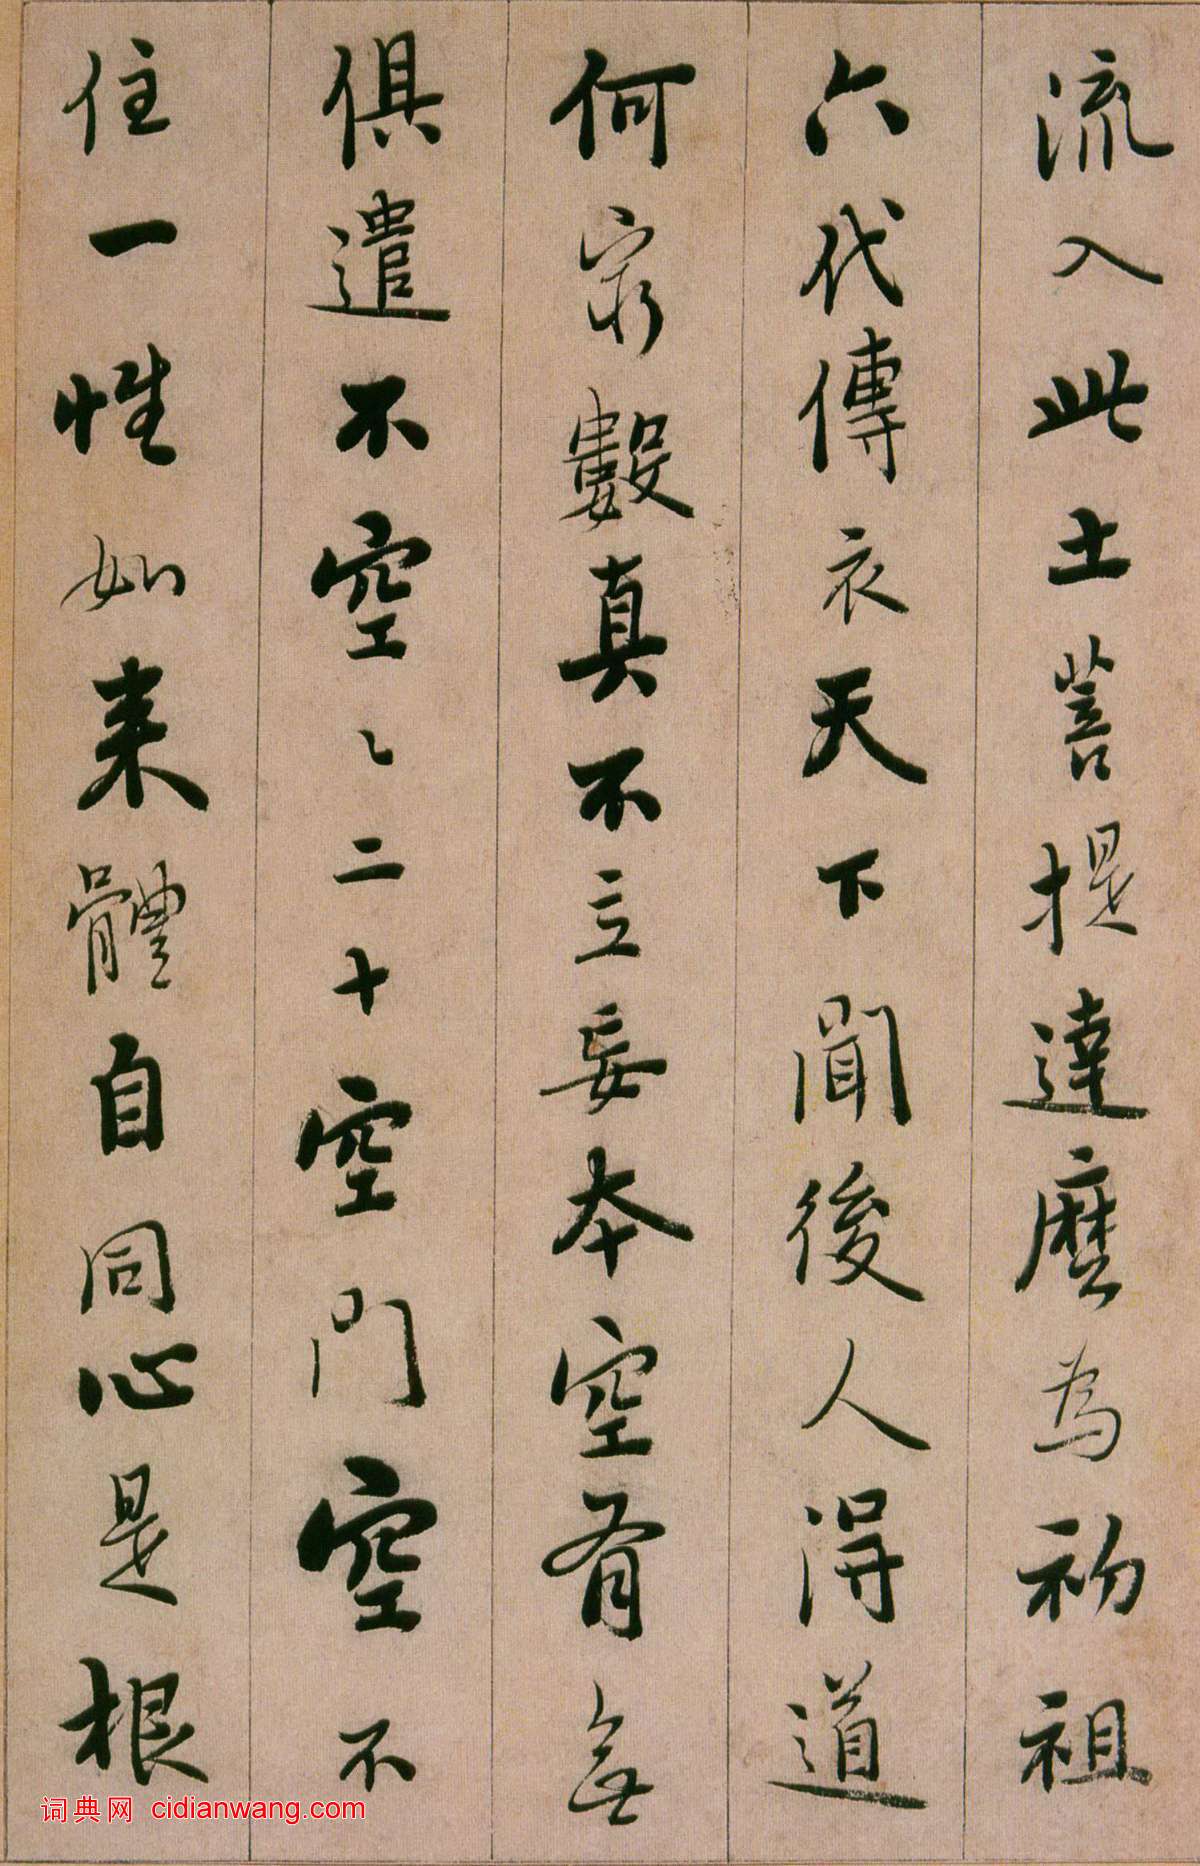 流入此土菩提達麼為初祖
六代傳衣天下聞後人得道
何窮數真不立妄本空有無
俱遣不空々二十空門空不
住一性如来體自同心是根
词典网 cidianwang.com